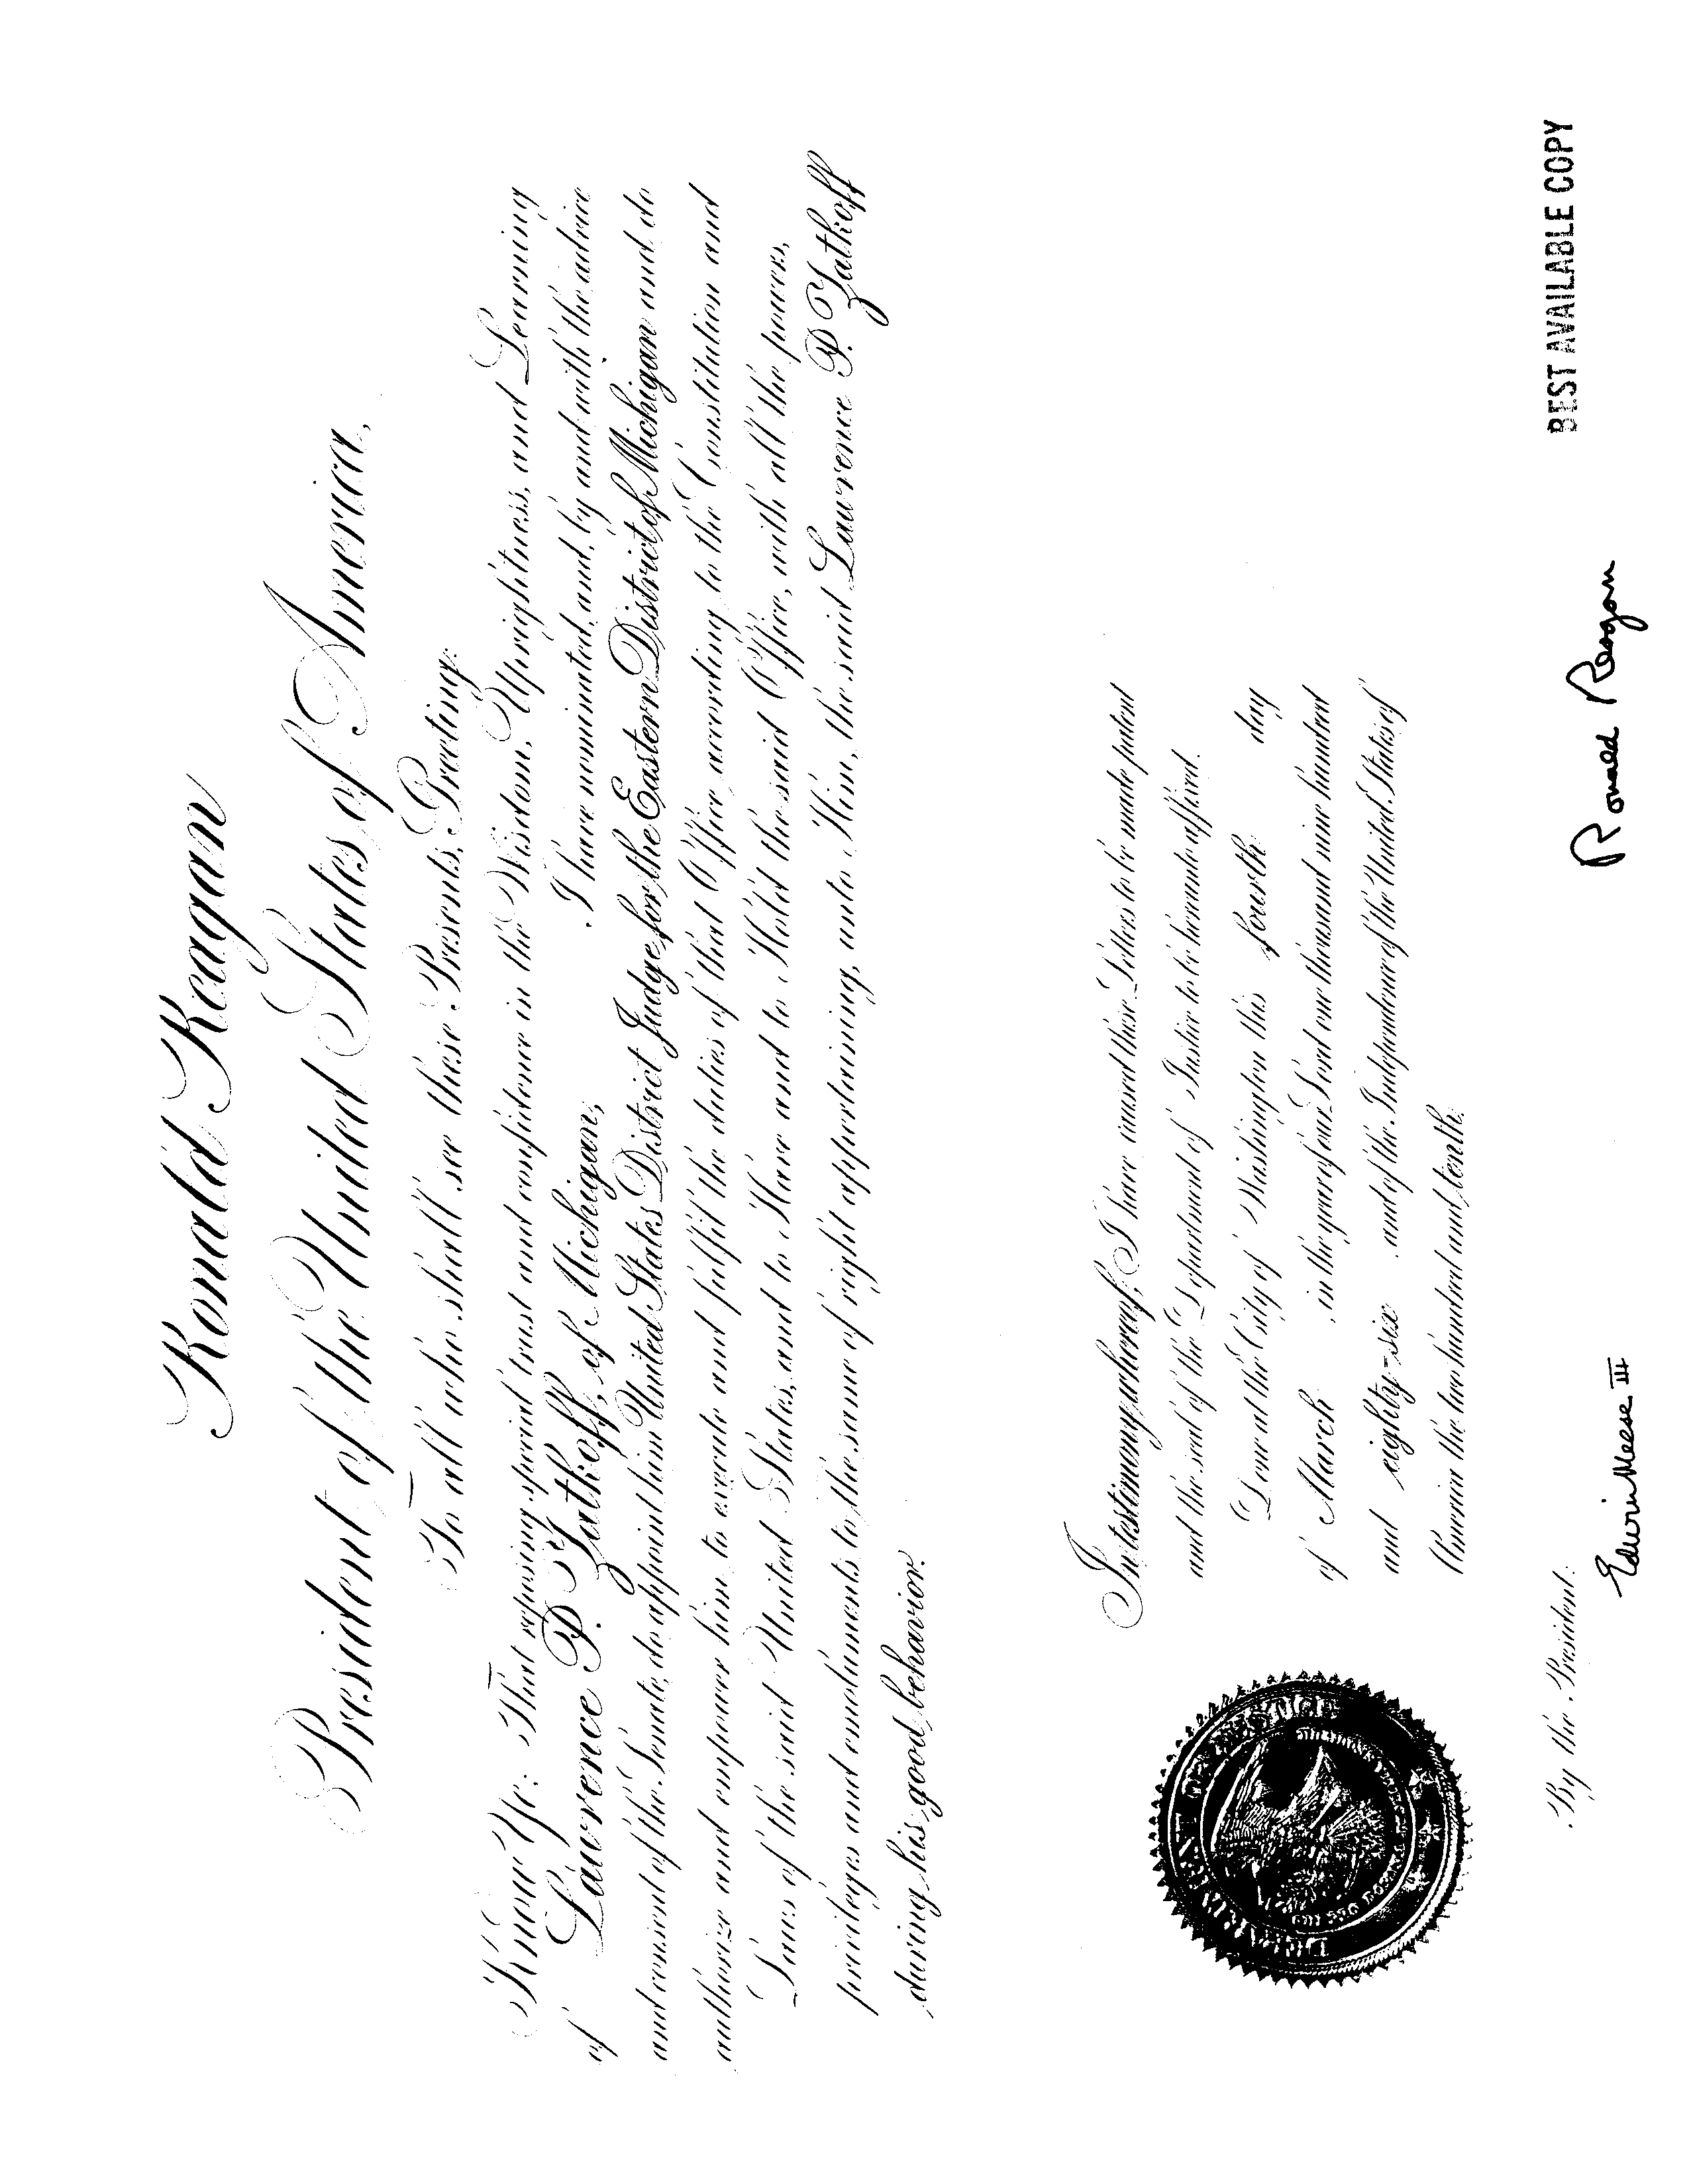 Ronald Reagan
President of the United States of America,
To all who shall see these Presents, Greeting:
Know Ye; That reposing special trust and confidence in the Wisdom, Uprightness, and Learning
of Lawrence P. Zatkoff, of Michigan, I have nominated, and, by and with the advice
and consent of the Senate, do appoint him United States District Judge for the Eastern District of Michigan and do
authorize and empower him to execute and fulfil the duties of that Office according to the Constitution and
Laws of the said United States, and to Have and to Hold the said Office, with all the powers,
privileges and emoluments to the same of right appertaining, unto Him, the said Lawrence P. Zatkoff
during his good behavior.
In testimony whereof, I have caused these Letters to be made patent
and the seal of the Department of Justice to be hereunto affixed.
Done at the City of Washington this fourth day
of March in the year of our Lord one thousand nine hundred
and eighty-six and of the Independence of the United States of
America the two hundred and tenth.
DEPARTMENT OF JUSTICE
BEST AVAILABLE COPY
By the President:
Ronald Reagan
Edwin Meese III